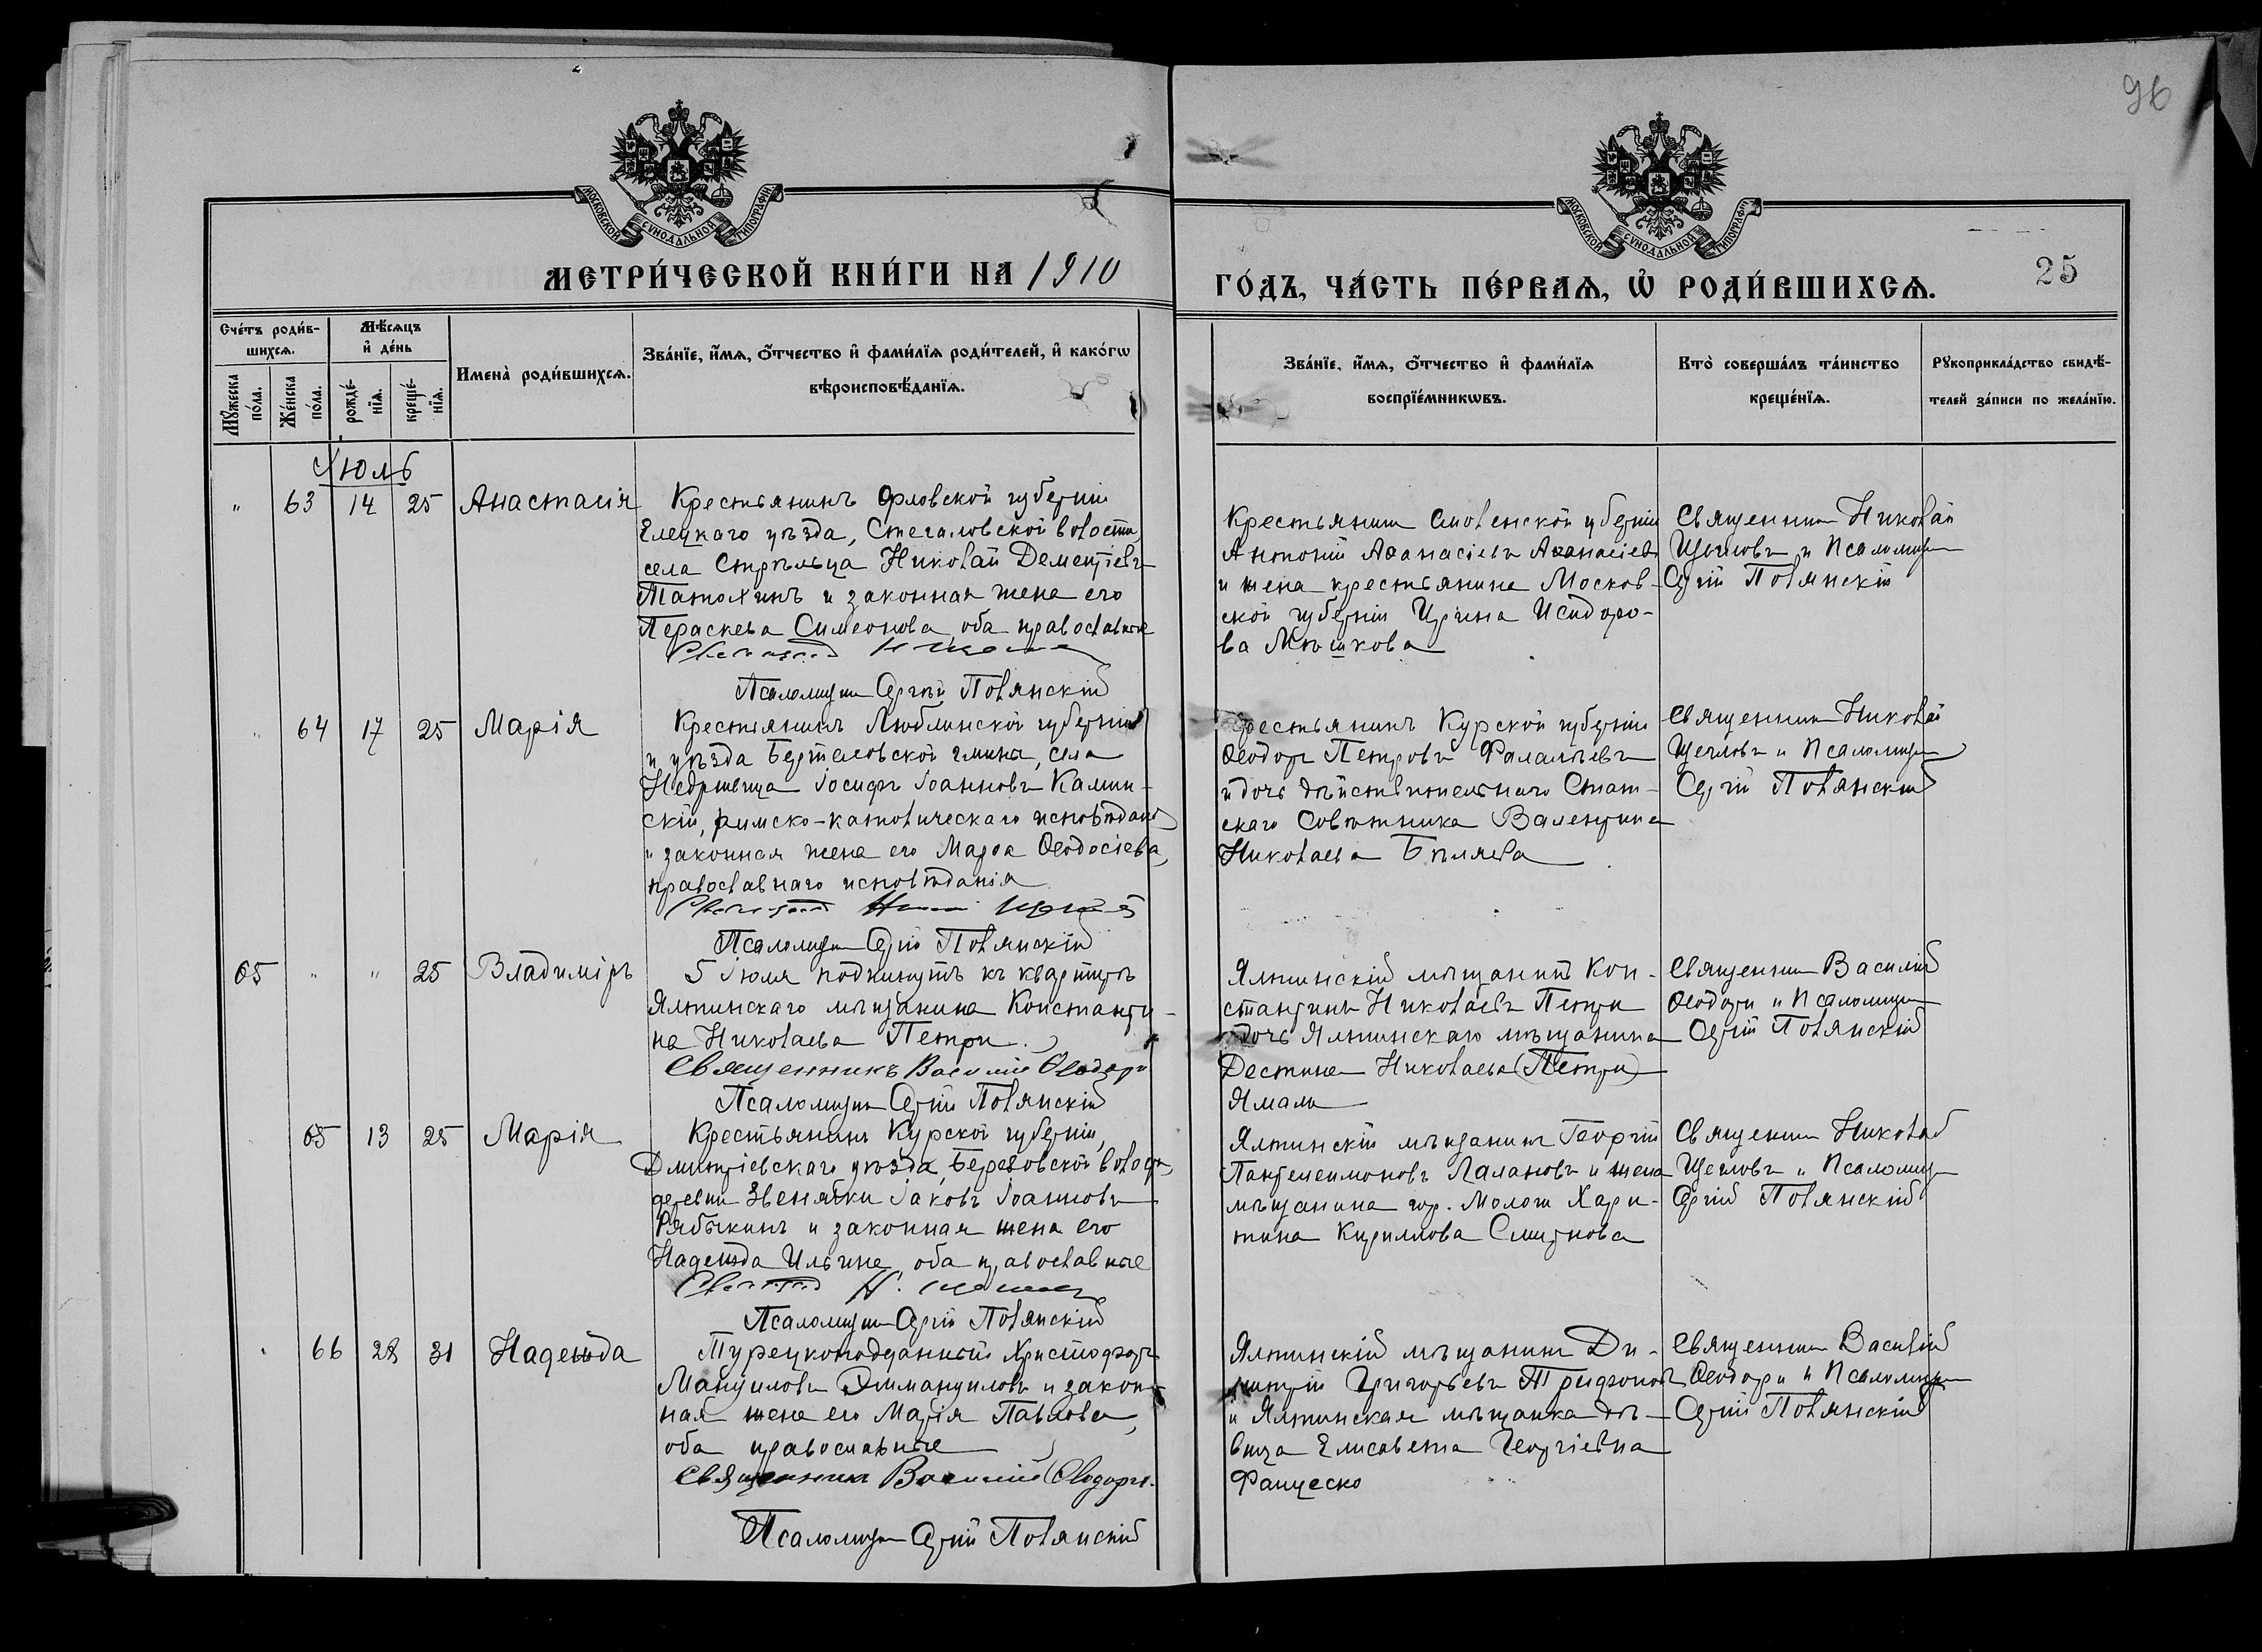 96
МОСКОВСКОЙ СУНОДАЛЬНОЙ ТИПОГРАФІИ
МОСКОВСКОЙ СУНОДАЛЬНОЙ ТИПОГРАФІИ
МЕТРИ́ЧЕСКОЙ КНИ́ГИ НА 1910
ГО́ДЪ, ЧА́СТЬ ПЕ́РВАЯ, Ѡ҆ РОДИ́ВШИХСЯ.
25
Сче́тъ роди́в-
шихся.
Мѣ́сяцъ
и҆ де́нь
Мꙋ́жеска
по́ла.
Же́нска
по́ла.
рожде́-
нїя.
креще́-
нїя.
Имена̀ роди́вшихся.
Зва́нїе, и҆́мя, ѻ҆́тчество и҆ фами́лїя роди́телей, и҆ како́гѡ
вѣроисповѣ́данїя.
Зва́нїе, и҆́мя, ѻ҆́тчество и҆ фами́лїя
воспрїе́мникѡвъ.
Кто̀ соверша́лъ та́инство
креще́нїя.
Рꙋкоприкла́дство свидѣ́-
телей за́писи по жела́нїю.
Іюль
" 63 14 25 Анастасія
Крестьянинъ Орловской губерніи
Елецкаго уѣзда, Стегаловской волости,
села Стрѣльца Николай Дементіевъ
Татохинъ и законная жена его
Параскева Симеонова, оба православные
Священникъ Н Щегловъ
Псаломщикъ Сергій Полянскій
Крестьянинъ Смоленской губерніи
Антоній Аѳанасіевъ Аѳанасіевъ
и жена крестьянина Москов-
ской губерніи Ирина Исидоро-
ва Мѣшкова
Священникъ Николай
Щегловъ и Псаломщикъ
Сергій Полянскій
" 64 17 25 Марія
Крестьянинъ Люблинской губерніи
и уѣзда гмины, села
Недржвица Іосифъ Іоанновъ Камин-
скій, римско-католическаго исповѣданія
и законная жена его Марѳа Ѳеодосіева,
православнаго исповѣданія
Священникъ Щегловъ
Псаломщикъ Сергій Полянскій
Крестьянинъ Курской губерніи
Ѳеодоръ Петровъ Фалалѣевъ
и дочь дѣйствительнаго Стат-
скаго Совѣтника Валентина
Николаева Бѣляева
Священникъ Николай
Щегловъ и Псаломщикъ
Сергій Полянскій
65 " " 25 Владиміръ
5 Іюля подкинутъ къ квартирѣ
Ялтинскаго мѣщанина Константи-
на Николаева Петри.
Священникъ Василій Ѳеодори
Псаломщикъ Сергій Полянскій
Ялтинскій мѣщанинъ Кон-
стантинъ Николаевъ Петри
и дочь Ялтинскаго мѣщанина
Дестина Николаева (Петри)
Ямали
Священникъ Василій
Ѳеодори и Псаломщикъ
Сергій Полянскій
65 13 25 Марія
Крестьянинъ Курской губерніи,
Дмитріевскаго уѣзда, Березовской волости,
деревни Звенячки Іаковъ Іоанновъ
Рябыкинъ и законная жена его
Надежда Ильина, оба православные
Священникъ Н. Щегловъ
Псаломщикъ Сергій Полянскій
Ялтинскій мѣщанинъ Георгій
Пантелеимоновъ Лалановъ и жена
мѣщанина гор. Мологи Хари-
тина Кириллова Смирнова
Священникъ Николай
Щегловъ и Псаломщикъ
Сергій Полянскій
" 66 28 31 Надежда
Турецкоподданный Христофоръ
Мануиловъ Эммануиловъ и закон-
ная жена его Марія Павлова,
оба православные
Священникъ Василій Ѳеодори.
Псаломщикъ Сергій Полянскій
Ялтинскій мѣщанинъ Ди-
митрій Григорьевъ Трифоновъ
и Ялтинская мѣщанка дѣ-
вица Елисавета Георгіевна
Фанцеско
Священникъ Василій
Ѳеодори и Псаломщикъ
Сергій Полянскій